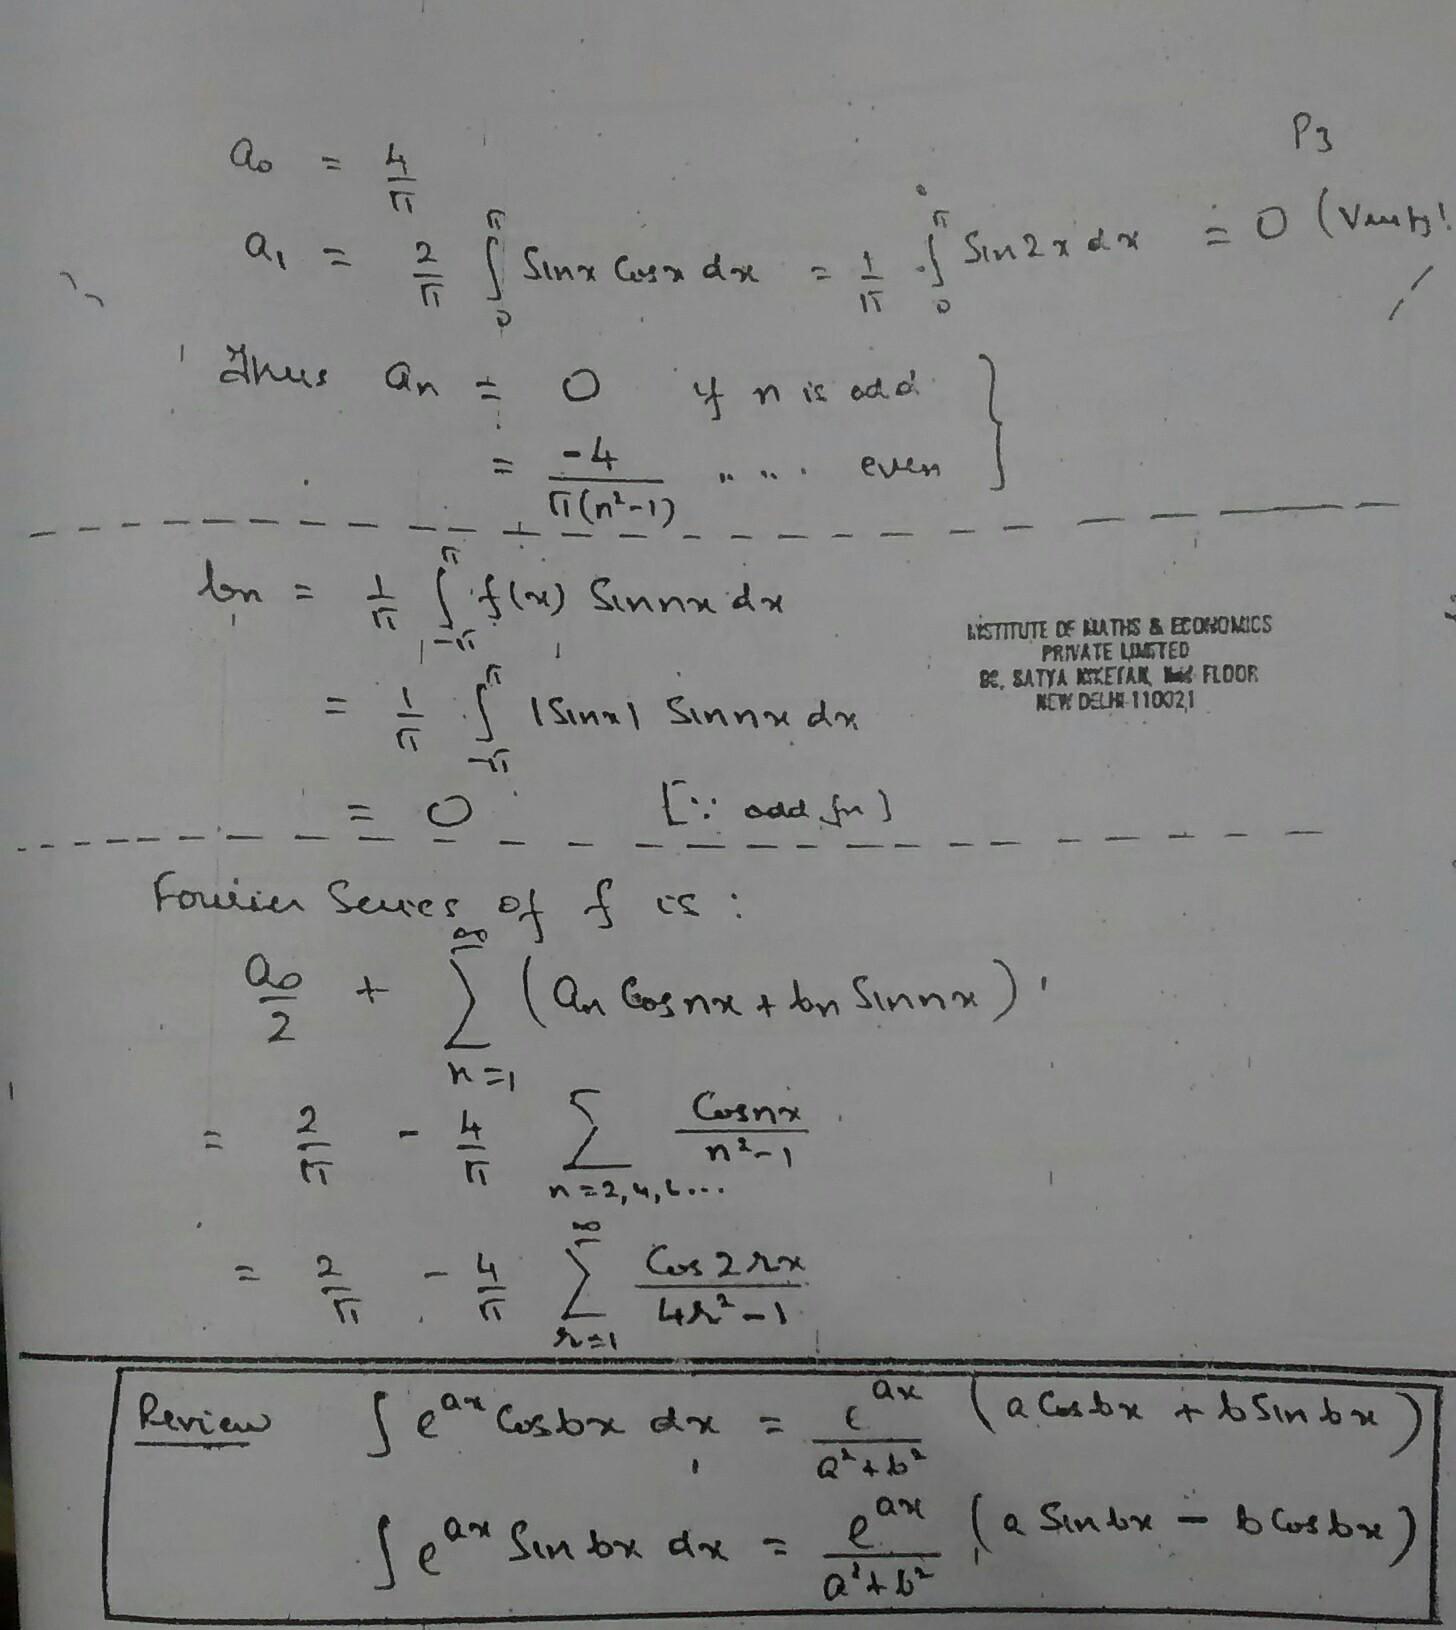 P3
a₀ = 4/π
a₁ = 2/π ∫₀^π Sinx Cosx dx = 1/π ∫₀^π Sin2x dx = 0 (Verify!
Thus an = 0 if n is odd }
= -4/π(n²-1) " " . even
bn = 1/π ∫_{-π}^{π} f(x) Sinnx dx
= 1/π ∫_{-π}^{π} |Sinx| Sinnx dx
= 0 [∵ odd fn]
INSTITUTE OF MATHS & ECONOMICS
PRIVATE LIMITED
SATYA NIKETAN, FLOOR
NEW DELHI-110021
Fourier Series of f is :
a₀/2 + ∑_{n=1}^{∞} (an Cosnx + bn Sinnx)
= 2/π - 4/π ∑_{n=2,4,6...} Cosnx/n²-1
= 2/π - 4/π ∑_{r=1}^{∞} Cos2rx/4r²-1
Review ∫e^{ax} Cosbx dx = e^{ax}/a²+b² (a Cosbx + b Sinbx)
∫e^{ax} Sinbx dx = e^{ax}/a²+b² (a Sinbx - b Cosbx)